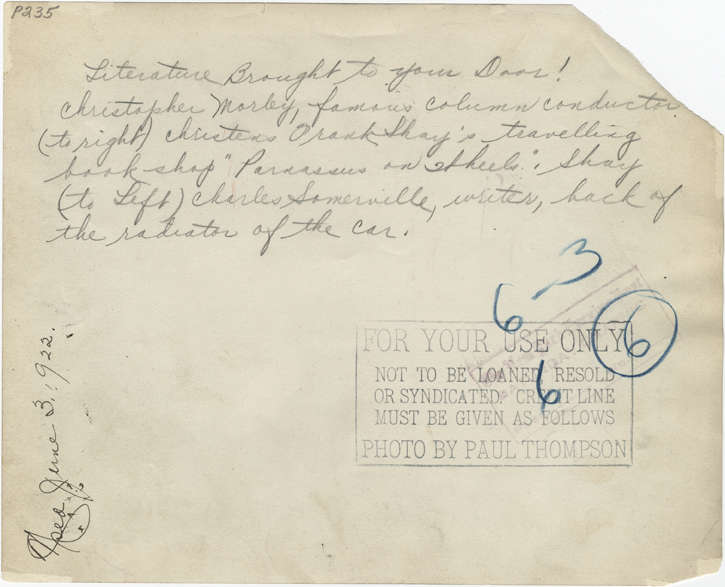 P235
Literature Brought to your Door!
Christopher Morley, famous column conductor
(to right) christens Frank Shay's travelling
book-shop "Parnassus on Wheels". Shay
(to Left) Charles Somerville, writer, back of
the radiator of the car.
3
6
6
6
FOR YOUR USE ONLY
NOT TO BE LOANED, RESOLD
OR SYNDICATED. CREDIT LINE
MUST BE GIVEN AS FOLLOWS
PHOTO BY PAUL THOMPSON
Used June 3. 1922.